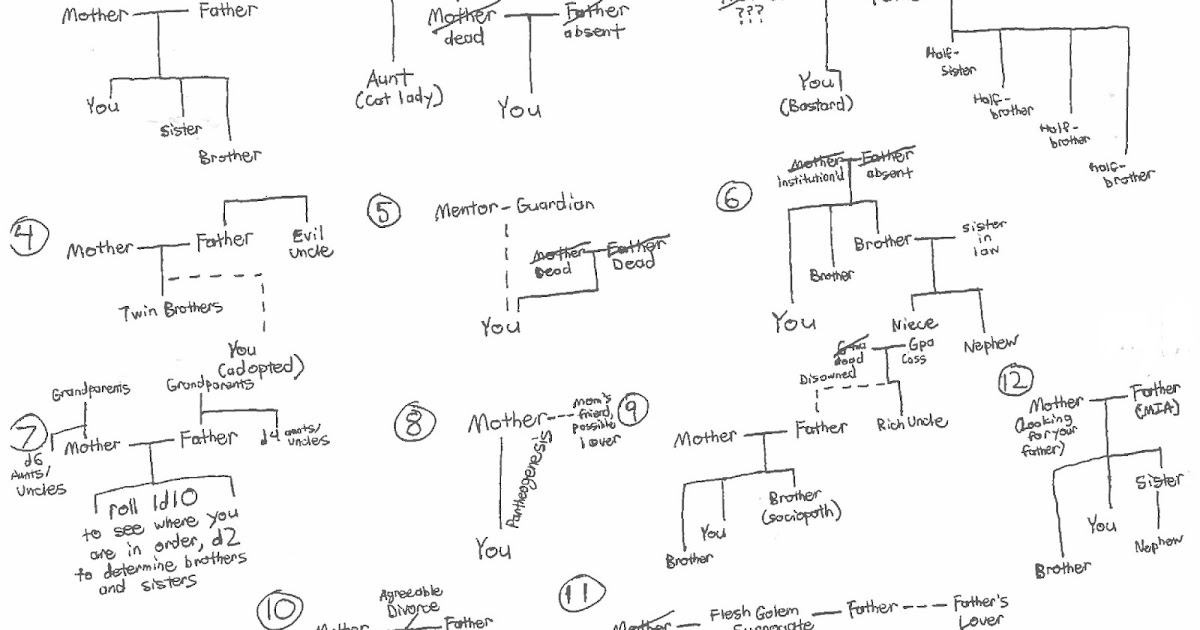 Mother Father
You
Sister
Brother
Aunt
(Cat lady)
Mother Father
dead absent
You
???
You
(Bastard)
Half-
Sister
Half-
brother
Half-
brother
half-
brother
4
Mother Father
Evil
Uncle
Twin Brothers
You
(adopted)
5
Mentor-Guardian
Mother Father
Dead Dead
You
6
Mother Father
Institution'd absent
You
Brother
Brother
sister
in
law
Niece
Nephew
7
Grandparents
Grandparents
Mother Father
d6
Aunts/
Uncles
d4 aunts/
Uncles
roll 1d10
to see where you
are in order, d2
to determine brothers
and sisters
8
Mother
Mom's
friend,
possible
lover
Partheogenesis
You
9
dead
Gpa
Coss
Disowned
Mother Father
Rich Uncle
Brother
You
Brother
(sociopath)
12
Mother
(Looking
for your
father)
Father
(MIA)
Brother
You
Sister
Nephew
10
Agreeable
Divorce
Mother Father
11
Mother
Flesh Golem
Surrogate
Father
Father's
Lover